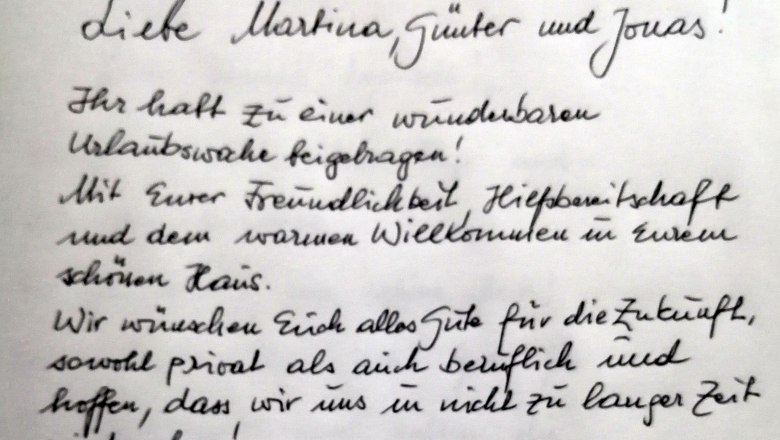 Liebe Martina, Günter und Jonas!
Ihr habt zu einer wunderbaren
Urlaubswoche beigetragen!
Mit Eurer Freundlichkeit, Hilfsbereitschaft
und dem warmen Willkommen in Eurem
schönen Haus.
Wir wünschen Euch alles Gute für die Zukunft,
sowohl privat als auch beruflich und
hoffen, dass wir uns in nicht zu langer Zeit